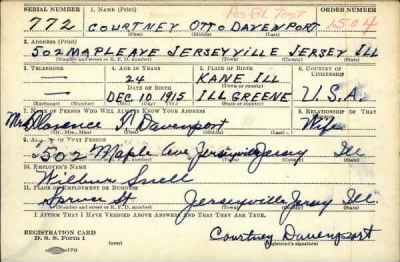 SERIAL NUMBER 1. NAME (Print) ORDER NUMBER
772 COURTNEY OTTO DAVENPORT 1504
(First) (Middle) (Last)
2. ADDRESS (Print)
502 MAPLE AVE JERSEYVILLE JERSEY ILL
(Number and street or R. F. D. number) (Town) (County) (State)
3. TELEPHONE 4. AGE IN YEARS 5. PLACE OF BIRTH 6. COUNTRY OF CITIZENSHIP
— 24 KANE ILL
DATE OF BIRTH (Town or county)
— DEC 10 1915 ILL GREENE U.S.A.
(Exchange) (Number) (Mo.) (Day) (Yr.) (State or country)
7. NAME OF PERSON WHO WILL ALWAYS KNOW YOUR ADDRESS 8. RELATIONSHIP OF THAT PERSON
Mrs N Davenport Wife
(Mr., Mrs., Miss) (First) (Middle) (Last)
9. ADDRESS OF THAT PERSON
502 Maple Ave Jerseyville Jersey Ill
(Number and street or R. F. D. number) (Town) (County) (State)
10. EMPLOYER'S NAME
Wilbur Snell
11. PLACE OF EMPLOYMENT OR BUSINESS
Spruce St Jerseyville Jersey Ill.
(Number and street or R. F. D. number) (Town) (County) (State)
I AFFIRM THAT I HAVE VERIFIED ABOVE ANSWERS AND THAT THEY ARE TRUE.
REGISTRATION CARD
D. S. S. Form 1 (over) Courtney Davenport
(Registrant's signature)